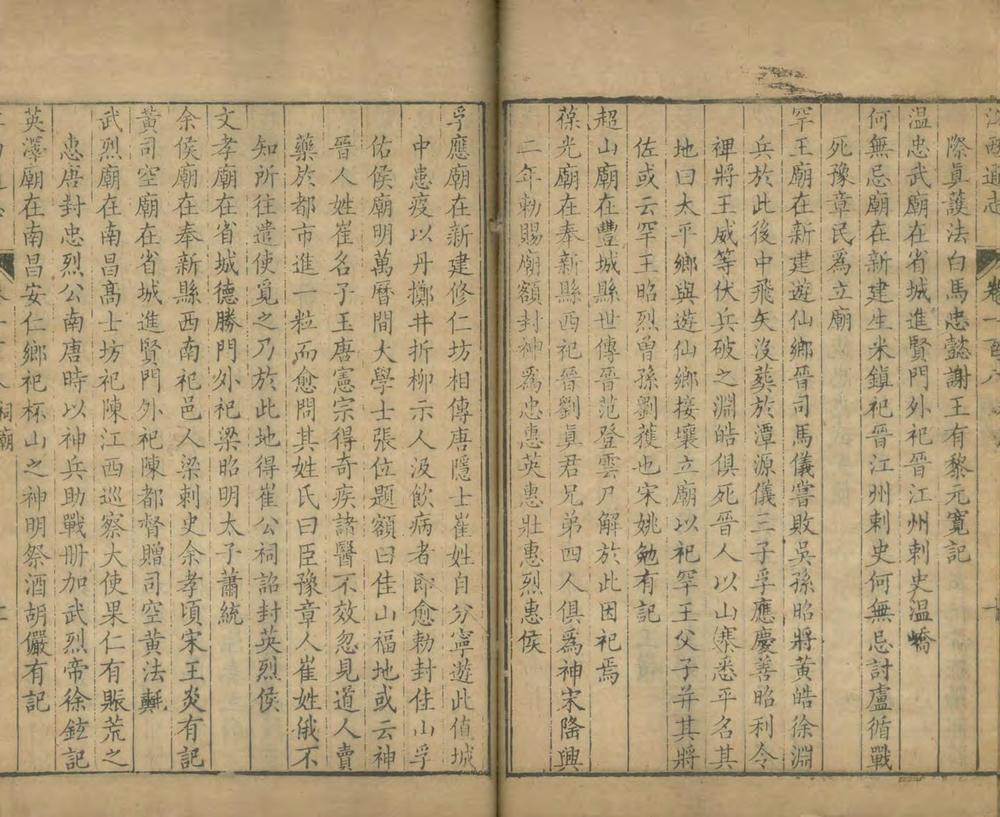 江西通志 卷一百八 十
際眞護法白馬忠懿謝王有黎元寬記
温忠武廟在省城進賢門外祀晉江州刺史温嶠
何無忌廟在新建生米鎮祀晉江州刺史何無忌討盧循戰
死豫章民爲立廟
罕王廟在新建遊仙鄉晉司馬儀嘗敗吳孫昭將黃皓徐淵
兵於此後中飛矢沒葬於潭源儀三子孚應慶善昭利令
裨將王威等伏兵破之淵皓俱死晉人以山寨悉平名其
地曰太平鄉與遊仙鄉接壤立廟以祀罕王父子并其將
佐或云罕王昭烈曾孫劉蓶也宋姚勉有記
超山廟在豐城縣世傳晉范登雲乃解於此因祀焉
葆光廟在奉新縣西祀晉劉眞君兄弟四人俱爲神宋隆興
二年勅賜廟額封神爲忠惠英惠壯惠烈惠侯
孚應廟在新建修仁坊相傳唐隱士崔姓自分寧遊此值城
中患疫以丹擲井折柳示人汲飲病者即愈勅封佳山孚
佑侯廟明萬曆間大學士張位題額曰佳山福地或云神
晉人姓崔名子玉唐憲宗得奇疾諸醫不效忽見道人賣
藥於都市進一粒而愈問其姓氏曰臣豫章人崔姓俄不
知所往遣使覓之乃於此地得崔公祠詔封英烈侯
文孝廟在省城德勝門外祀梁昭明太子蕭統
余侯廟在奉新縣西南祀邑人梁刺史余孝頃宋王炎有記
黃司空廟在省城進賢門外祀陳都督贈司空黃法𣰰
武烈廟在南昌髙士坊祀陳江西巡察大使果仁有賑荒之
惠唐封忠烈公南唐時以神兵助戰册加武烈帝徐鉉記
英澤廟在南昌安仁鄉祀杯山之神明祭酒胡儼有記
祠廟